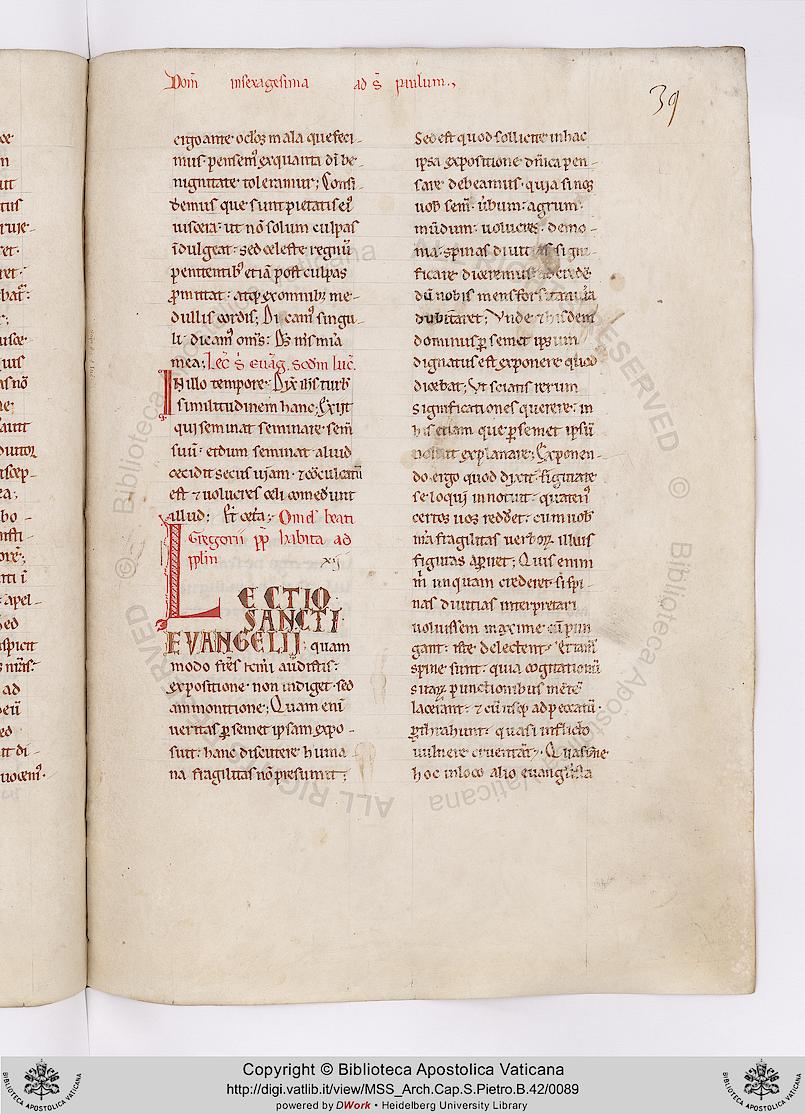 Dom̄ insexagesima ad s̄ paulum.,
39
ergo ante oclos mala que feci-
mus· pensem᷒ exquanta di be-
nignitate toleramur; Consi-
demus que sunt pietatis ei᷒
uiscera· ut nō solum culpas
īdulgeat· sed celeste regnū
penitentib᷒ etiā post culpas
p̄mittat· atq; exomnib; me-
dullis cordis; Dicam᷒ singu-
li· dicam᷒ om̄s· D̄s m̄s mīa
mea; Lec̄ s̄ euāg. Scdm luc̄.
In illo tempore· Dix̄ ih̄s turb᷒
similitudinem hanc; Exijt
qui seminat seminare sem̄
suū· et dum seminat aliud
cecidit secus uiam· ⁊ cōculcatū
est ⁊ uolucres celi comederunt
illud; Et ceta; Omel᷒ beati
Gregorii pp̄ habita ad
pp̄lm xij
LECTIO
SANCTI
EVANGELIJ· quam
modo fr̄es km̄i audistis·
expositione non indiget· sed
ammonitione; Quam eni
ueritas ꝑ semet ipsam expo-
suit· hanc discutere huma
na fragilitas nō presumit;
Sed est quod sollicite in hac
ipsa expositione dn̄ica pen-
sare debeamus· quia si nos
uob᷒ sem̄· ūbum· agrum·
mūdum· uolucres· demo-
nia· spinas diuitias signi-
ficare diceremus· ad crede
dū nobis mens forsitan ur̄a
dubitaret; Vnde ⁊ hisdem
dominus ꝑ semet ipsum
dignatus est exponere quod
dicebat; Vt sciatis rerum
significationes querere· in
his etiam que ꝑ semet ipsū
noluit explanare; Exponen-
do ergo quod dixit· figurate
se loqui innotuit· quaten᷒
certos uos redderet· cum uob᷒
nr̄a fragilitas uerboꝝ illius
figuras apiret; Quis enim
m̄ unquam crederet· si spi-
nas diuitias interpretari
uoluissem· maxime cū ille pun
gant· iste delectent· Et tam̄
spine sunt· quia cogitationū
suaꝝ punctionibus mētē
lacerant· ⁊ cū usq; ad peccatū·
ꝑtrahunt· quasi inflicto
uulnere cruentāt· Quas bn̄e
hoc in loco alio euangelista
Copyright © Biblioteca Apostolica Vaticana
http://digi.vatlib.it/view/MSS_Arch.Cap.S.Pietro.B.42/0089
powered by DWork • Heidelberg University Library